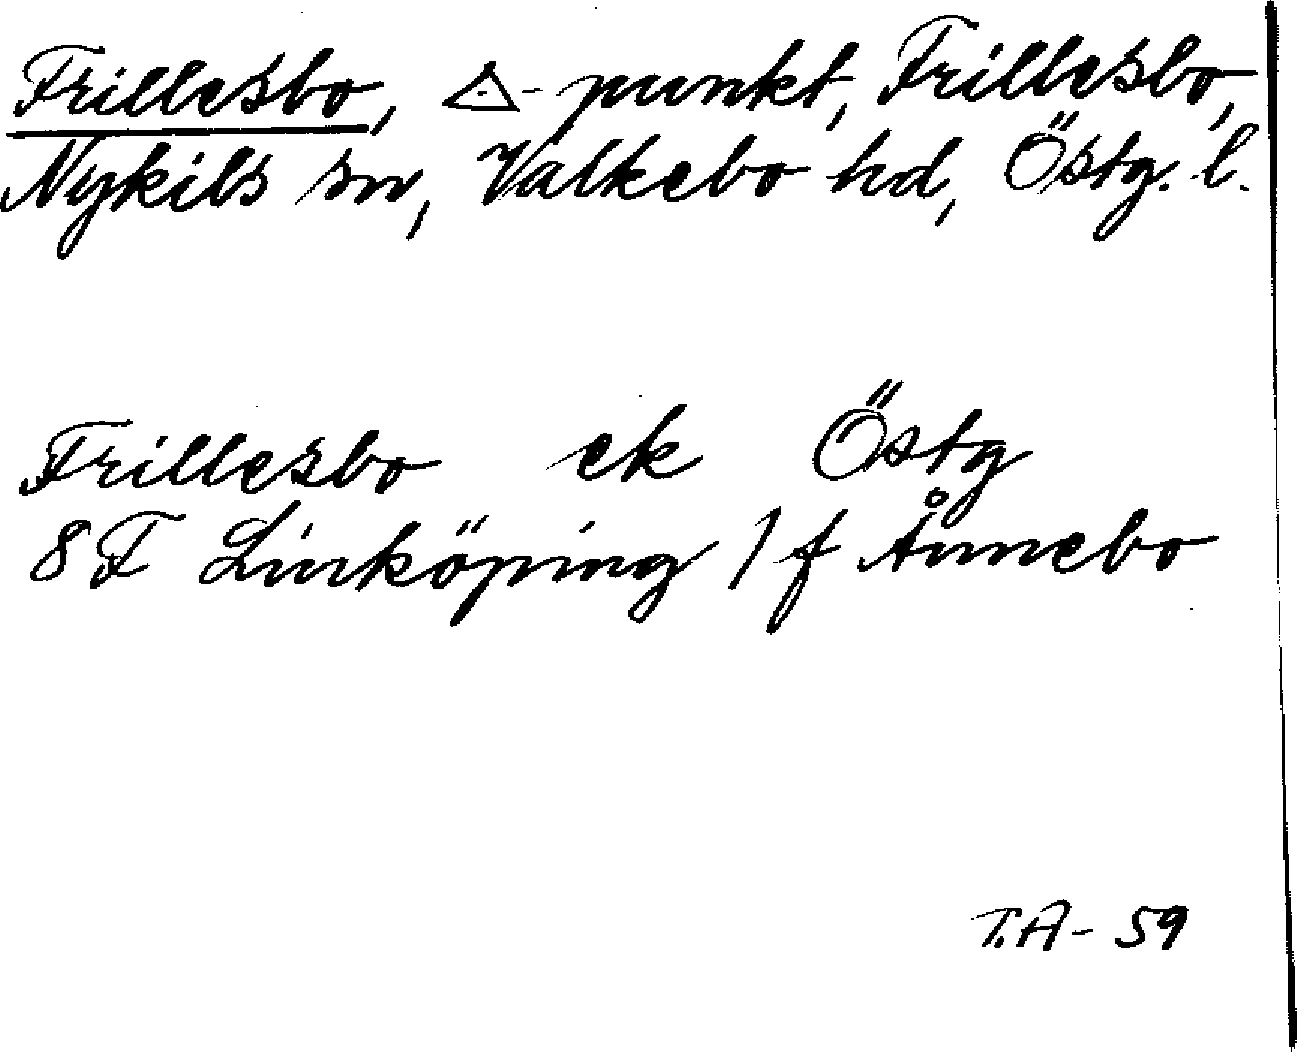 Frillesbo, △-punkt, Frillesbo,
Nykils sn, Valkebo hd, Östg. l.
Frillesbo ek Östg
8F Linköping 1 f Ånnebo
T.A-59